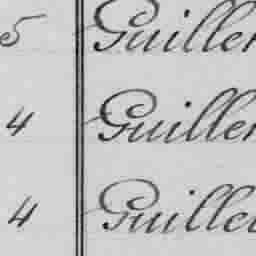 5 Guiller
4 Guiller
4 Guille